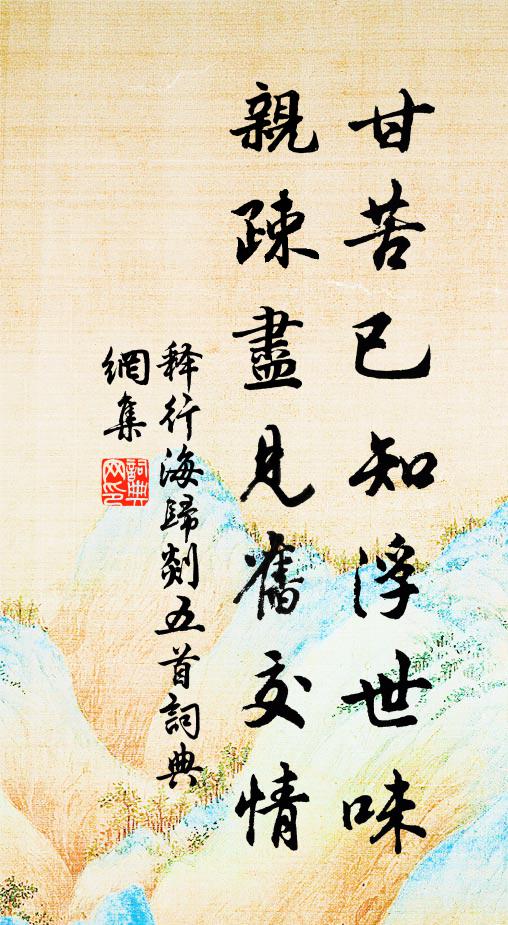 甘苦已知浮世味
親疎盡見舊交情
释行海歸剡五首詞典
網集
詞典網印